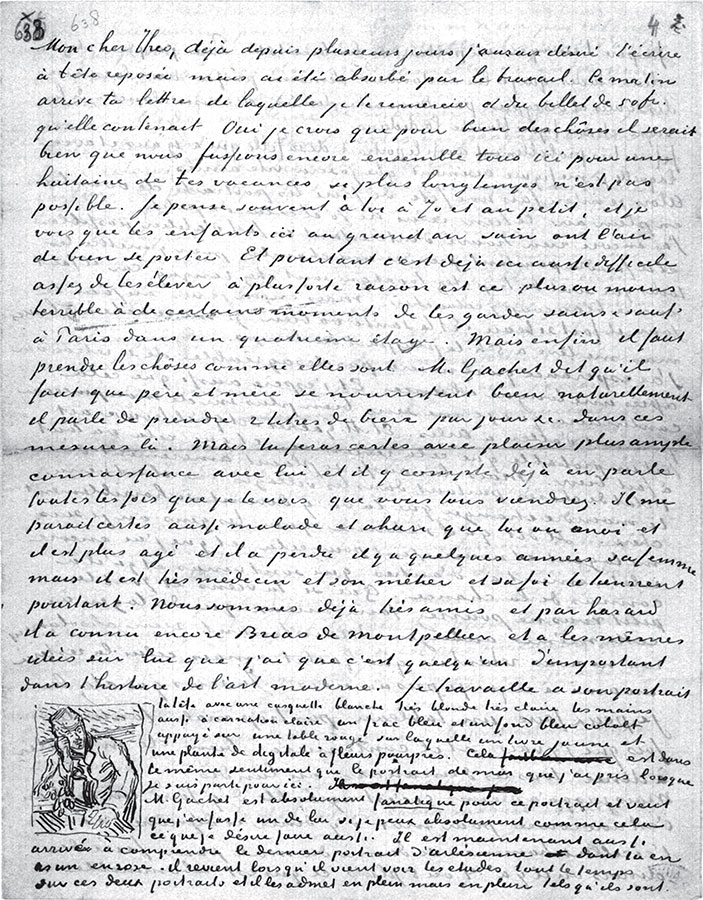 638 638 4
Mon cher Theo, déjà depuis plusieurs jours j'aurais désiré t'écrire
à tête reposée mais ai été absorbé par le travail. Ce matin
arrive ta lettre de laquelle je te remercie et du billet de 50 fr.
qu'elle contenait. Oui je crois que pour bien des chôses il serait
bien que nous fussions encore ensemble tous ici pour une
huitaine de tes vacances si plus longtemps n'est pas
possible. Je pense souvent à toi à Jo et au petit, et je
vois que les enfants ici au grand air sain ont l'air
de bien se porter. Et pourtant c'est déjà ici aussi difficile
assez de les élever à plus forte raison est ce plus ou moins
terrible à de certains moments de les garder sains & saufs
à Paris dans un quatrième étage. Mais enfin il faut
prendre les chôses comme elles sont. M. Gachet dit qu'il
faut que père et mère se nourrissent bien naturellement
il parle de prendre 2 litres de bière par jour &c. dans ces
mesures là. Mais tu feras certes avec plaisir plus ample
connaissance avec lui et il y compte déjà en parle
toutes les fois que je le vois, que vous tous viendrez. Il me
parait certes aussi malade et ahuri que toi ou moi et
il est plus agé et il a perdu il y a quelques années sa femme
mais il est très médecin et son métier et sa foi le tiennent
pourtant. Nous sommes déjà très amis et par hasard
il a connu encore Brias de Montpellier et a les mêmes
idées sur lui que j'ai que c'est quelqu'un d'important
dans l'histoire de l'art moderne. Je travaille à son portrait
la tête avec une casquette blanche très blonde très claire les mains
aussi à carnation claire un frac bleu et un fond bleu cobalt
appuyé sur une table rouge sur laquelle un livre jaune et
une plante de digitale à fleurs pourpres. Cela est dans
le même sentiment que le portrait de moi que j'ai pris lorsque
je suis parti pour ici.
M. Gachet est absolument fanatique pour ce portrait et veut
que j'en fasse un de lui si je peux absolument comme cela
ce que je désire faire aussi. Il est maintenant aussi
arrivé à comprendre le dernier portrait d'arlésienne dont tu en
as un en rose. il revient lorsqu'il vient voir les etudes tout le temps
sur ces deux portraits et il les admet en plein mais en plein tels qu'ils sont.